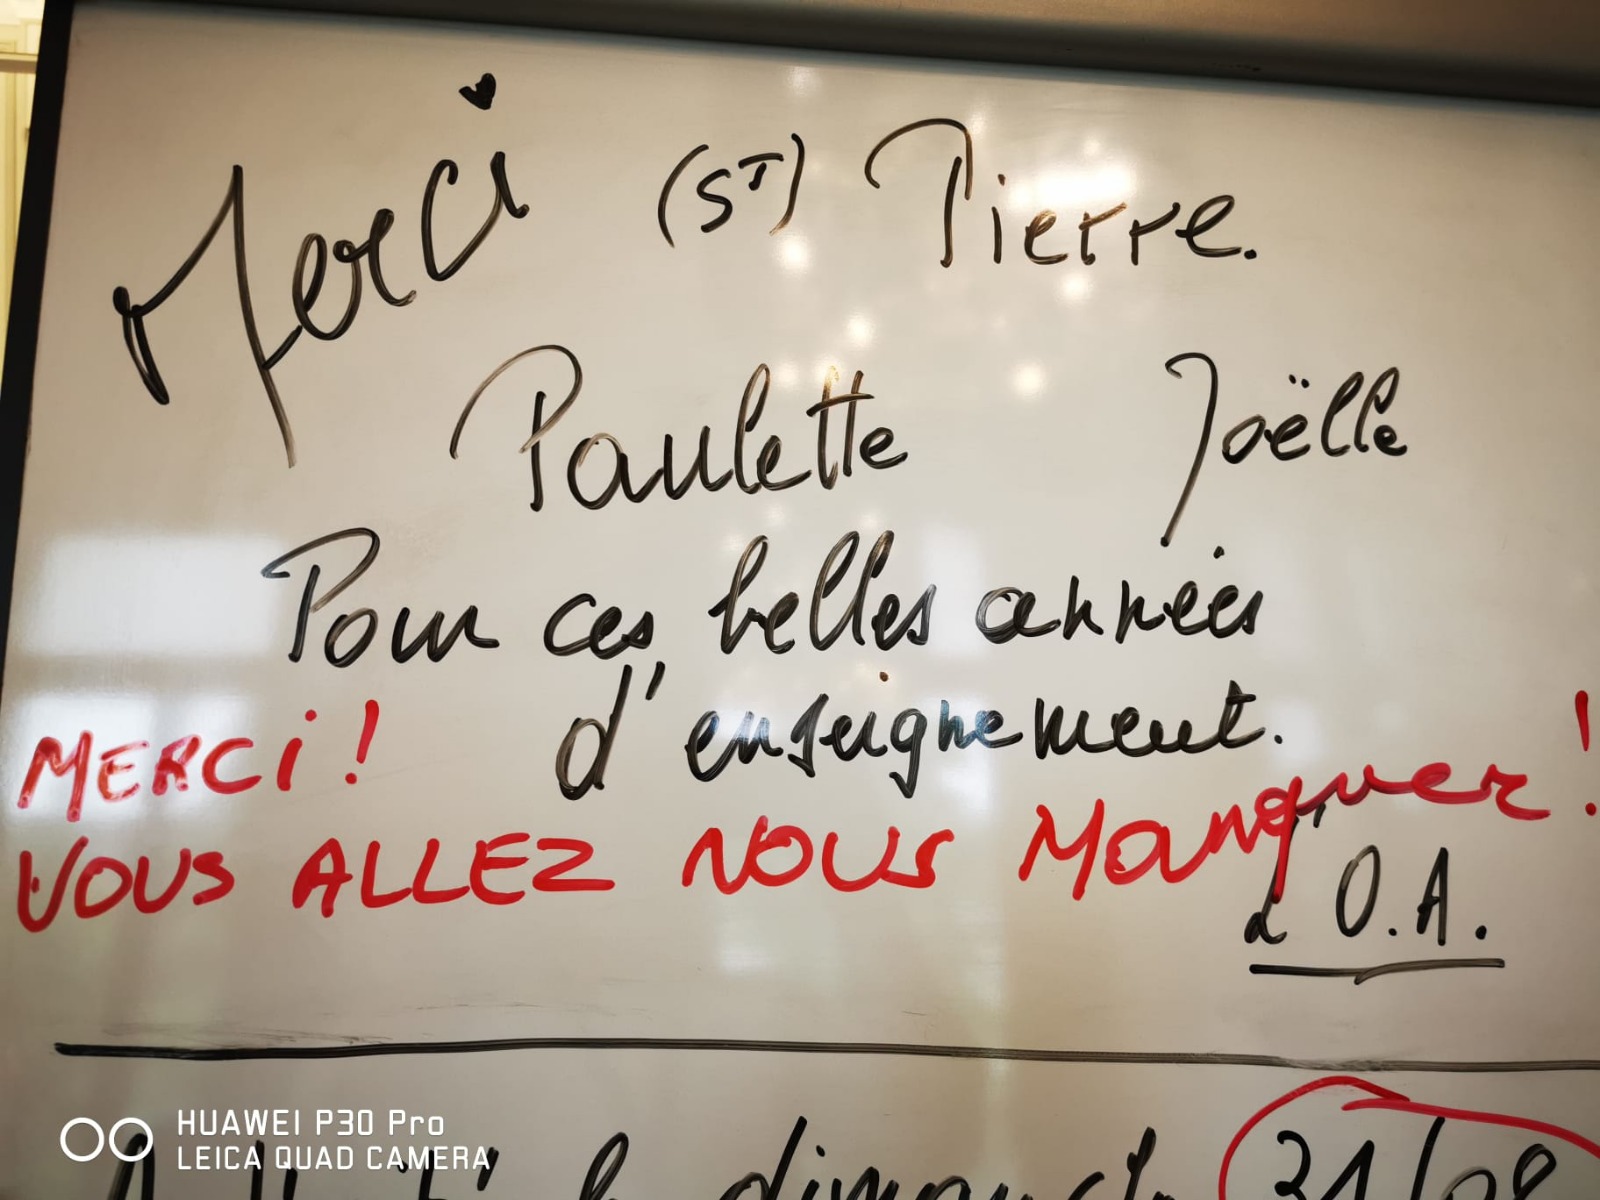 Merci (ST) Pierre.
Paulette Joëlle
Pour ces belles années
d'enseignement.
MERCi !
VOUS ALLEZ NOUS Manquer !
à O.A.
le dimanche 31/08
HUAWEI P30 Pro
LEICA QUAD CAMERA